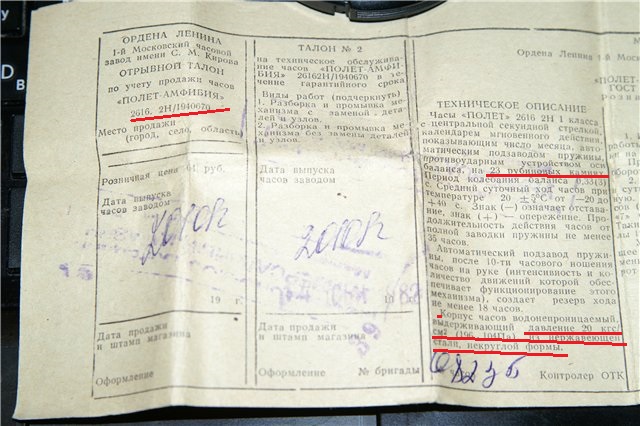 ОРДЕНА ЛЕНИНА
1-й Московский часовой
завод имени С. М. Кирова
ОТРЫВНОЙ ТАЛОН
по учету продажи часов
«ПОЛЕТ-АМФИБИЯ»
2616, 2Н/1940670
Место продажи
(город, село, область)
Розничная цена
руб.
Дата выпуска
часов заводом
19 г.
Дата продажи
и штамп магазина
Оформление
ТАЛОН № 2
на техническое обслужива-
ние часов «ПОЛЕТ-АМФИ-
БИЯ» 26162Н/1940670 в те-
чение гарантийного срока
Виды работ (подчеркнуть)
1. Разборка и промывка ме-
ханизма с заменой дета-
лей и узлов.
2. Разборка и промывка ме-
ханизма без замены деталей
и узлов.
Дата выпуска
часов заводом
19
Дата продажи
и штамп магазина
Оформление № бригады
М
Ордена Ленина 1-й
ТЕХНИЧЕСКОЕ ОПИСАНИЕ
Часы «ПОЛЕТ» 2616 2Н 1 класса
с центральной секундной стрелкой,
календарем мгновенного действия,
показывающим число месяца, авто-
матическим подзаводом пружины,
противоударным устройством оси
баланса, на 23 рубиновых камнях
Период колебания баланса 0,33(3)
с. Средний суточный ход часов при
температуре 20 ±5°С от —20 до
+40 с. Знак (—) означает отстава-
ние, знак (+) — опережение. Про-
должительность действия часов от
полной заводки пружины не менее
35 часов.
Автоматический подзавод пружи-
ны, после 10-ти часового ношения
часов на руке (интенсивность и ко-
личество движений которой обес-
печивает функционирование этого
механизма), создает резерв хода
не менее 18 часов.
Корпус часов водонепроницаемый,
выдерживающий давление 20 кгс/
см² из нержавеющей
стали, некруглой формы.
Контролер ОТК